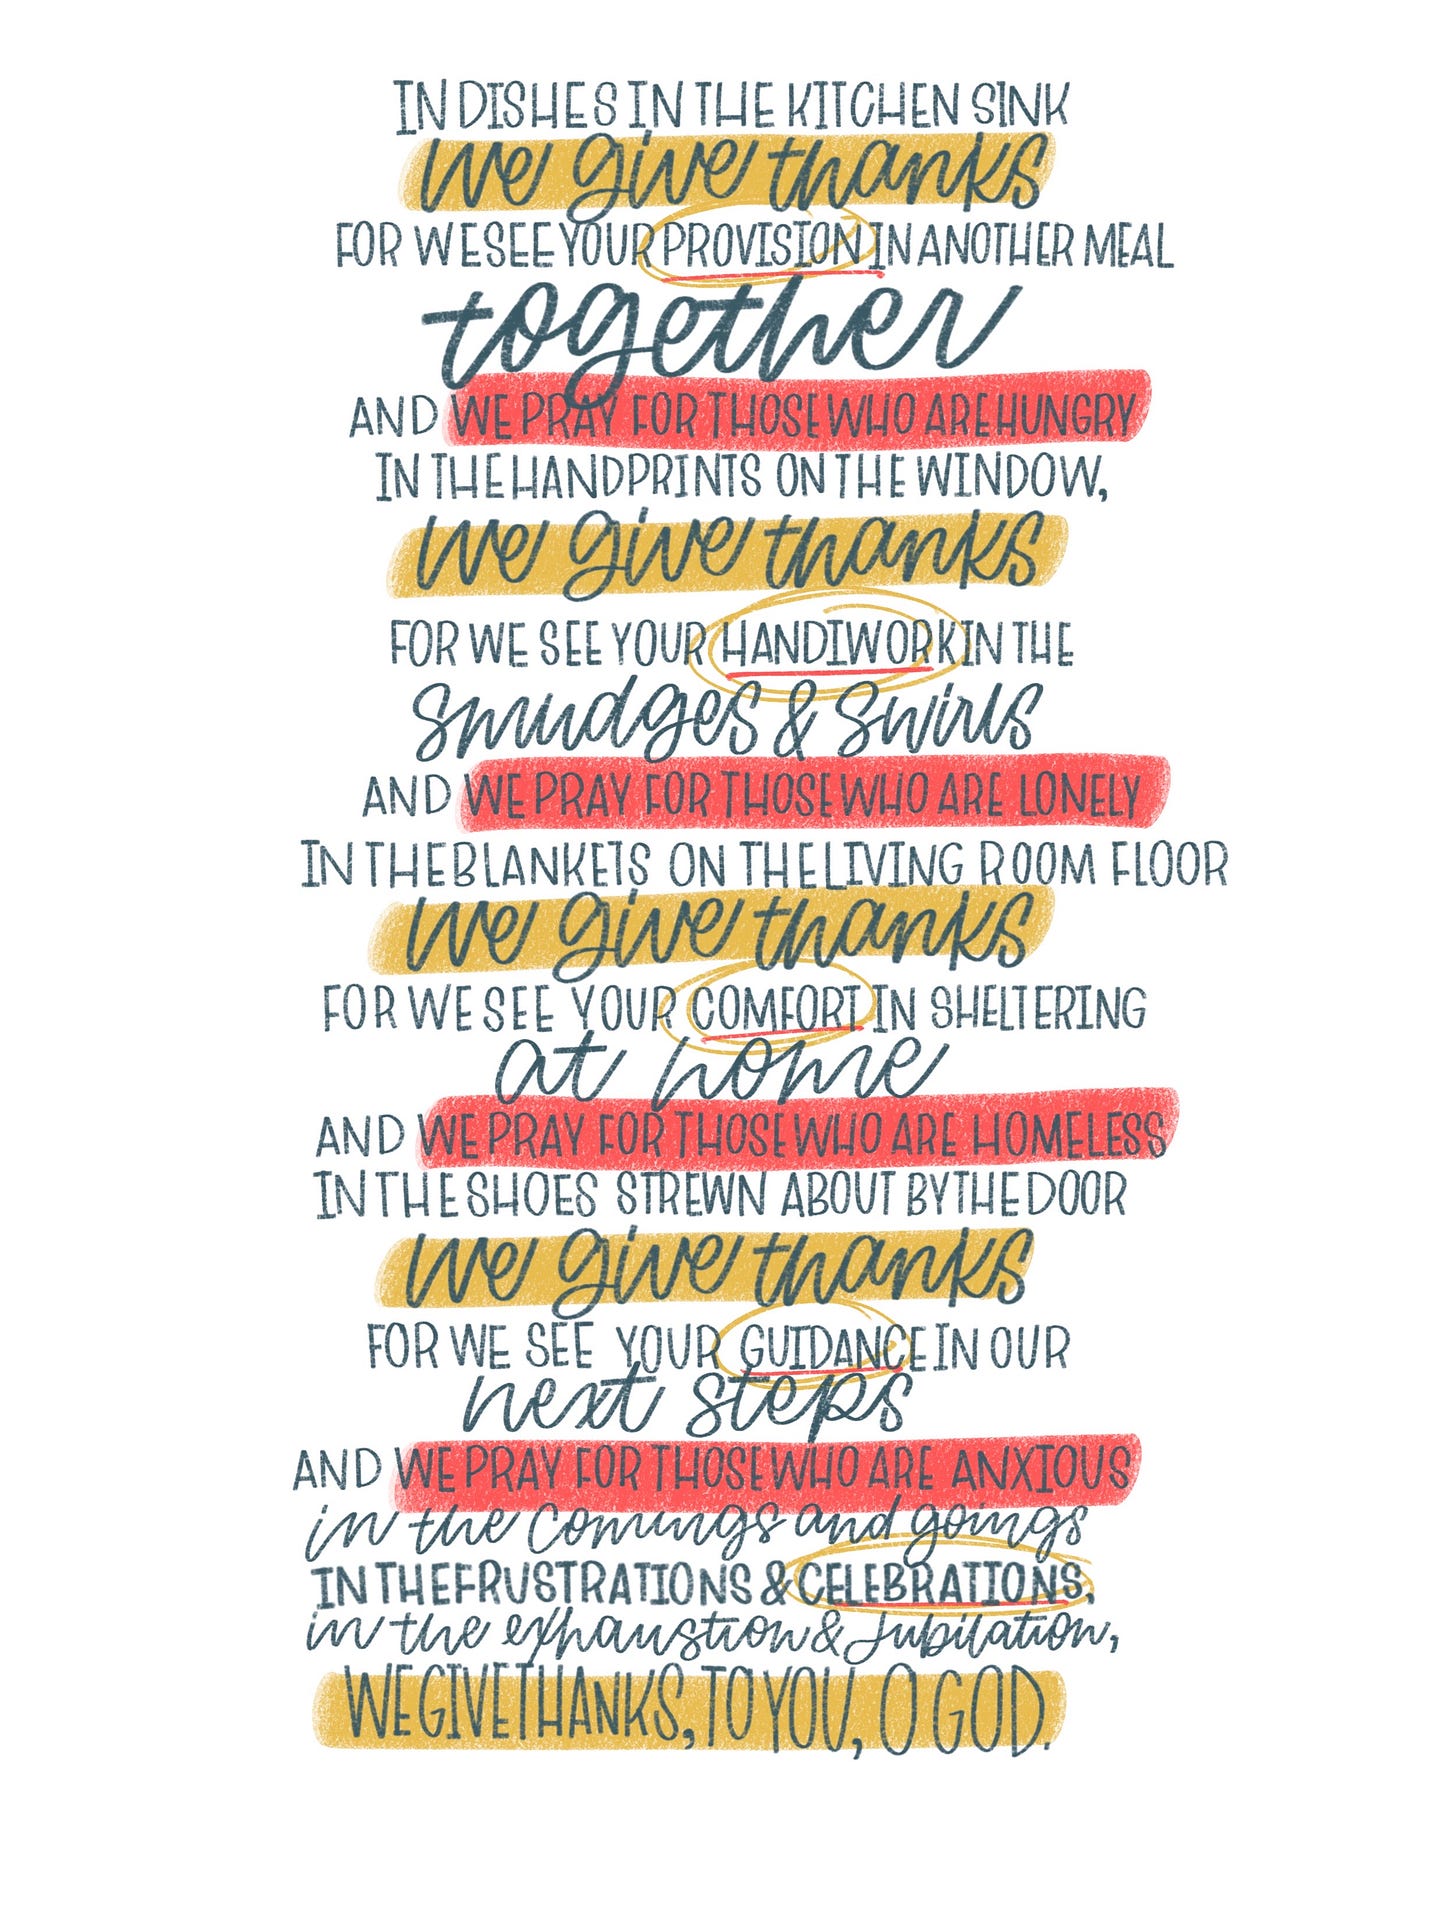 IN DISHES IN THE KITCHEN SINK
we give thanks
FOR WE SEE YOUR PROVISION IN ANOTHER MEAL
together
AND WE PRAY FOR THOSE WHO ARE HUNGRY
IN THE HANDPRINTS ON THE WINDOW,
we give thanks
FOR WE SEE YOUR HANDIWORK IN THE
smudges & swirls
AND WE PRAY FOR THOSE WHO ARE LONELY
IN THE BLANKETS ON THE LIVING ROOM FLOOR
we give thanks
FOR WE SEE YOUR COMFORT IN SHELTERING
at home
AND WE PRAY FOR THOSE WHO ARE HOMELESS
IN THE SHOES STREWN ABOUT BY THE DOOR
we give thanks
FOR WE SEE YOUR GUIDANCE IN OUR
next steps
AND WE PRAY FOR THOSE WHO ARE ANXIOUS
in the comings and goings
IN THE FRUSTRATIONS & CELEBRATIONS,
in the exhaustion & jubilation,
WE GIVE THANKS, TO YOU, O GOD.